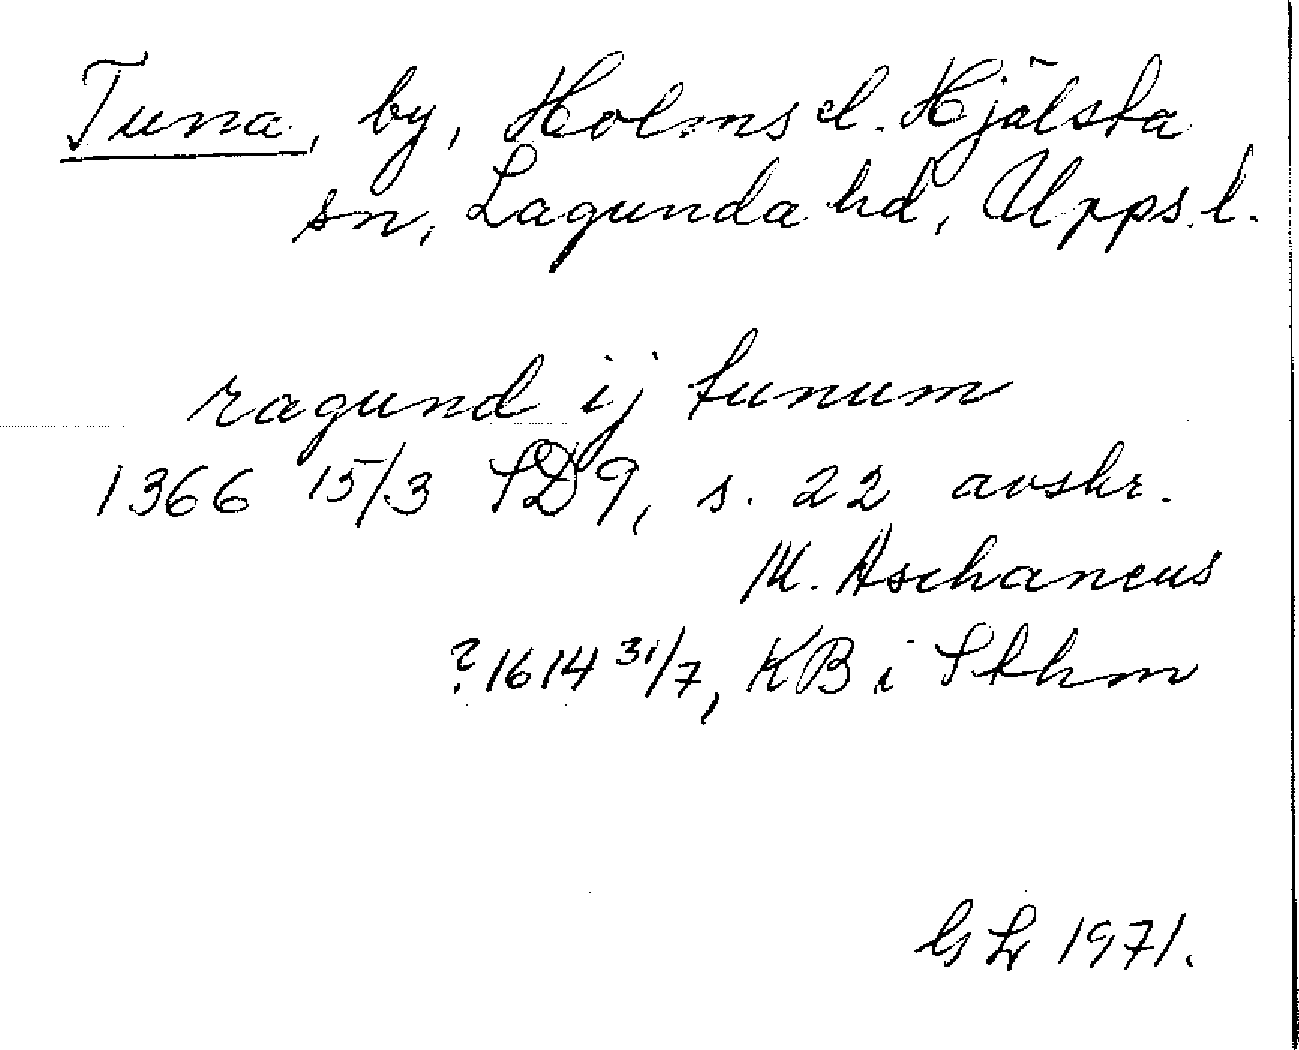 Tuna, by, Holms el. Hjälsta
sn, Lagunda hd, Upps. l.
ragund ij tunum
1366 15/3 SD9, s. 22 avskr.
M. Aschaneus
?1614 31/7, KB i Sthm
GLr 1971.